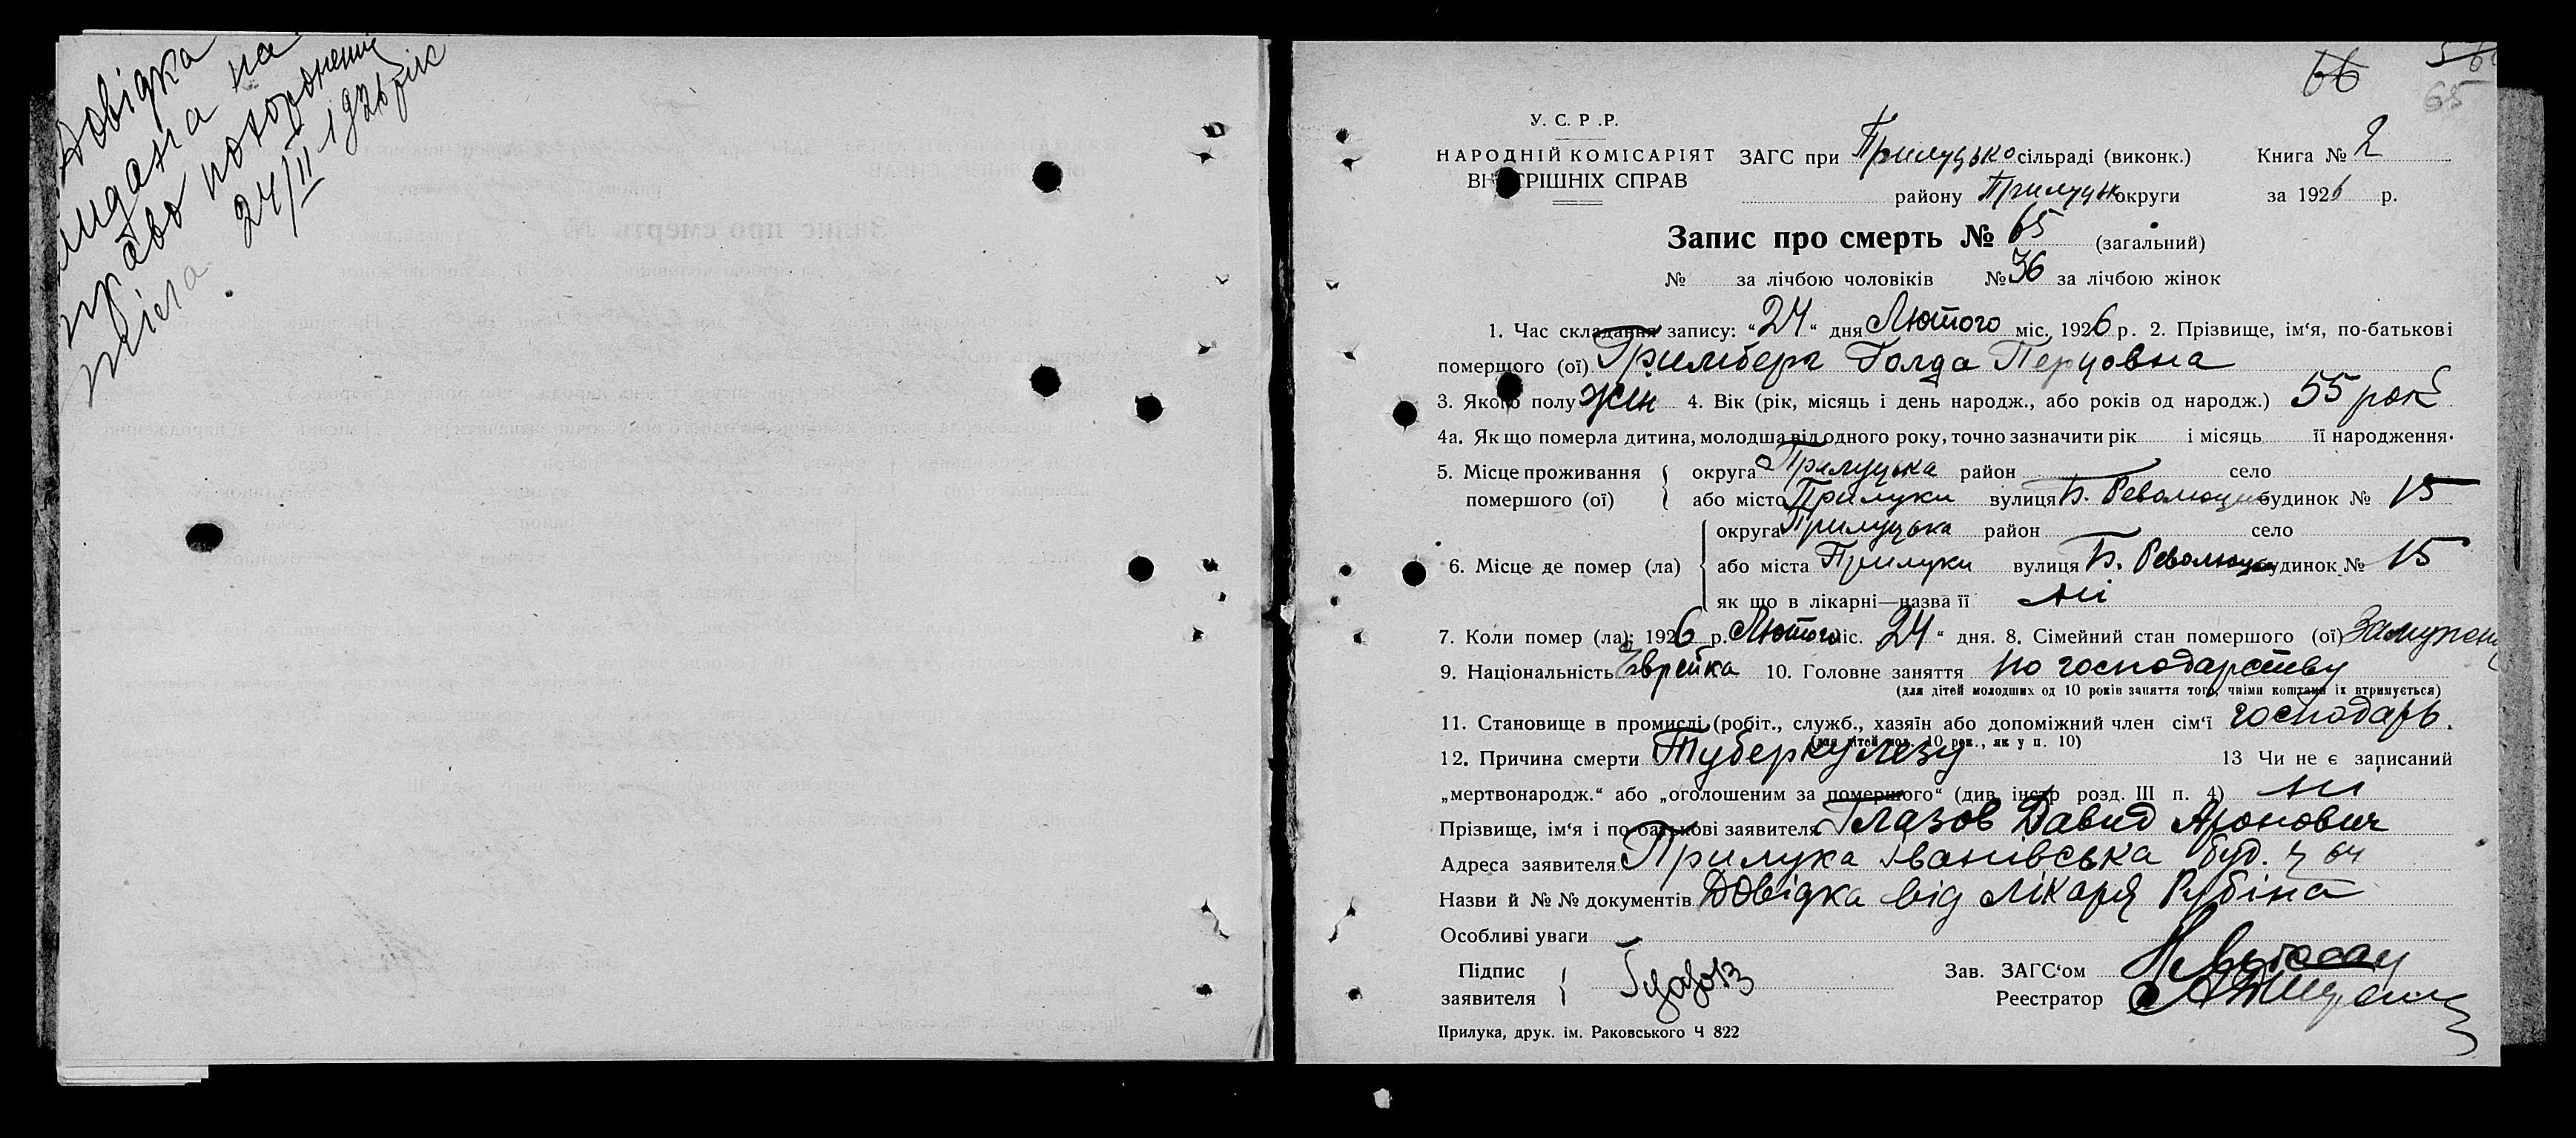 Довідка
видана на
право похорднення
тіла 24/II 1926 рік
66
65
У. С. Р. Р.
НАРОДНІЙ КОМІСАРІЯТ
ВНУТРІШНІХ СПРАВ
ЗАГС при Прилуцько сільраді (виконк.) Книга № 2
району Прилуцьк округи за 1926 р.
Запис про смерть № 65 (загальний)
№ за лічбою чоловіків № 36 за лічбою жінок
1. Час складання запису: "24" дня Лютого міс. 1926 р. 2. Прізвище, ім'я, по-батькові
помершого (ої) Гримберг Голда Перцовна
3. Якого полу жін 4. Вік (рік, місяць і день народж., або років од народж.) 55 рок
4а. Як що померла дитина, молодша від одного року, точно зазначити рік і місяць її народження.
5. Місце проживання помершого (ої) { округа Прилуцька район село
або місто Прилуки вулиця Б. Революции будинок № 15
6. Місце де помер (ла) { округа Прилуцька район село
або міста Прилуки вулиця Б. Революции будинок № 15
як що в лікарні—назва її ні
7. Коли помер (ла): 1926 р. Лютого міс. 24 " дня. 8. Сімейний стан помершого (ої)
9. Національність Єврейка 10. Головне заняття по господарству
(для дітей молодших од 10 років заняття того, чиїми коштами їх втримується)
11. Становище в промислі (робіт., служб., хазяїн або допоміжний член сім'ї господарь.
(для дітей мол. 10 рок., як у п. 10)
12. Причина смерти Туберкулезу 13 Чи не є записаний
„мертвонародж.“ або „оголошеним за помершого“ (див. інстр розд. III п. 4) ні
Прізвище, ім'я і по-батькові заявителя Глазов Давид Аронович
Адреса заявителя Прилука Іванівська буд. ч 64
Назви й № № документів Довідка від лікаря Рубіна
Особливі уваги
Підпис заявителя { Глазов
Зав. ЗАГС'ом
Реестратор
Прилука, друк. ім. Раковського Ч 822